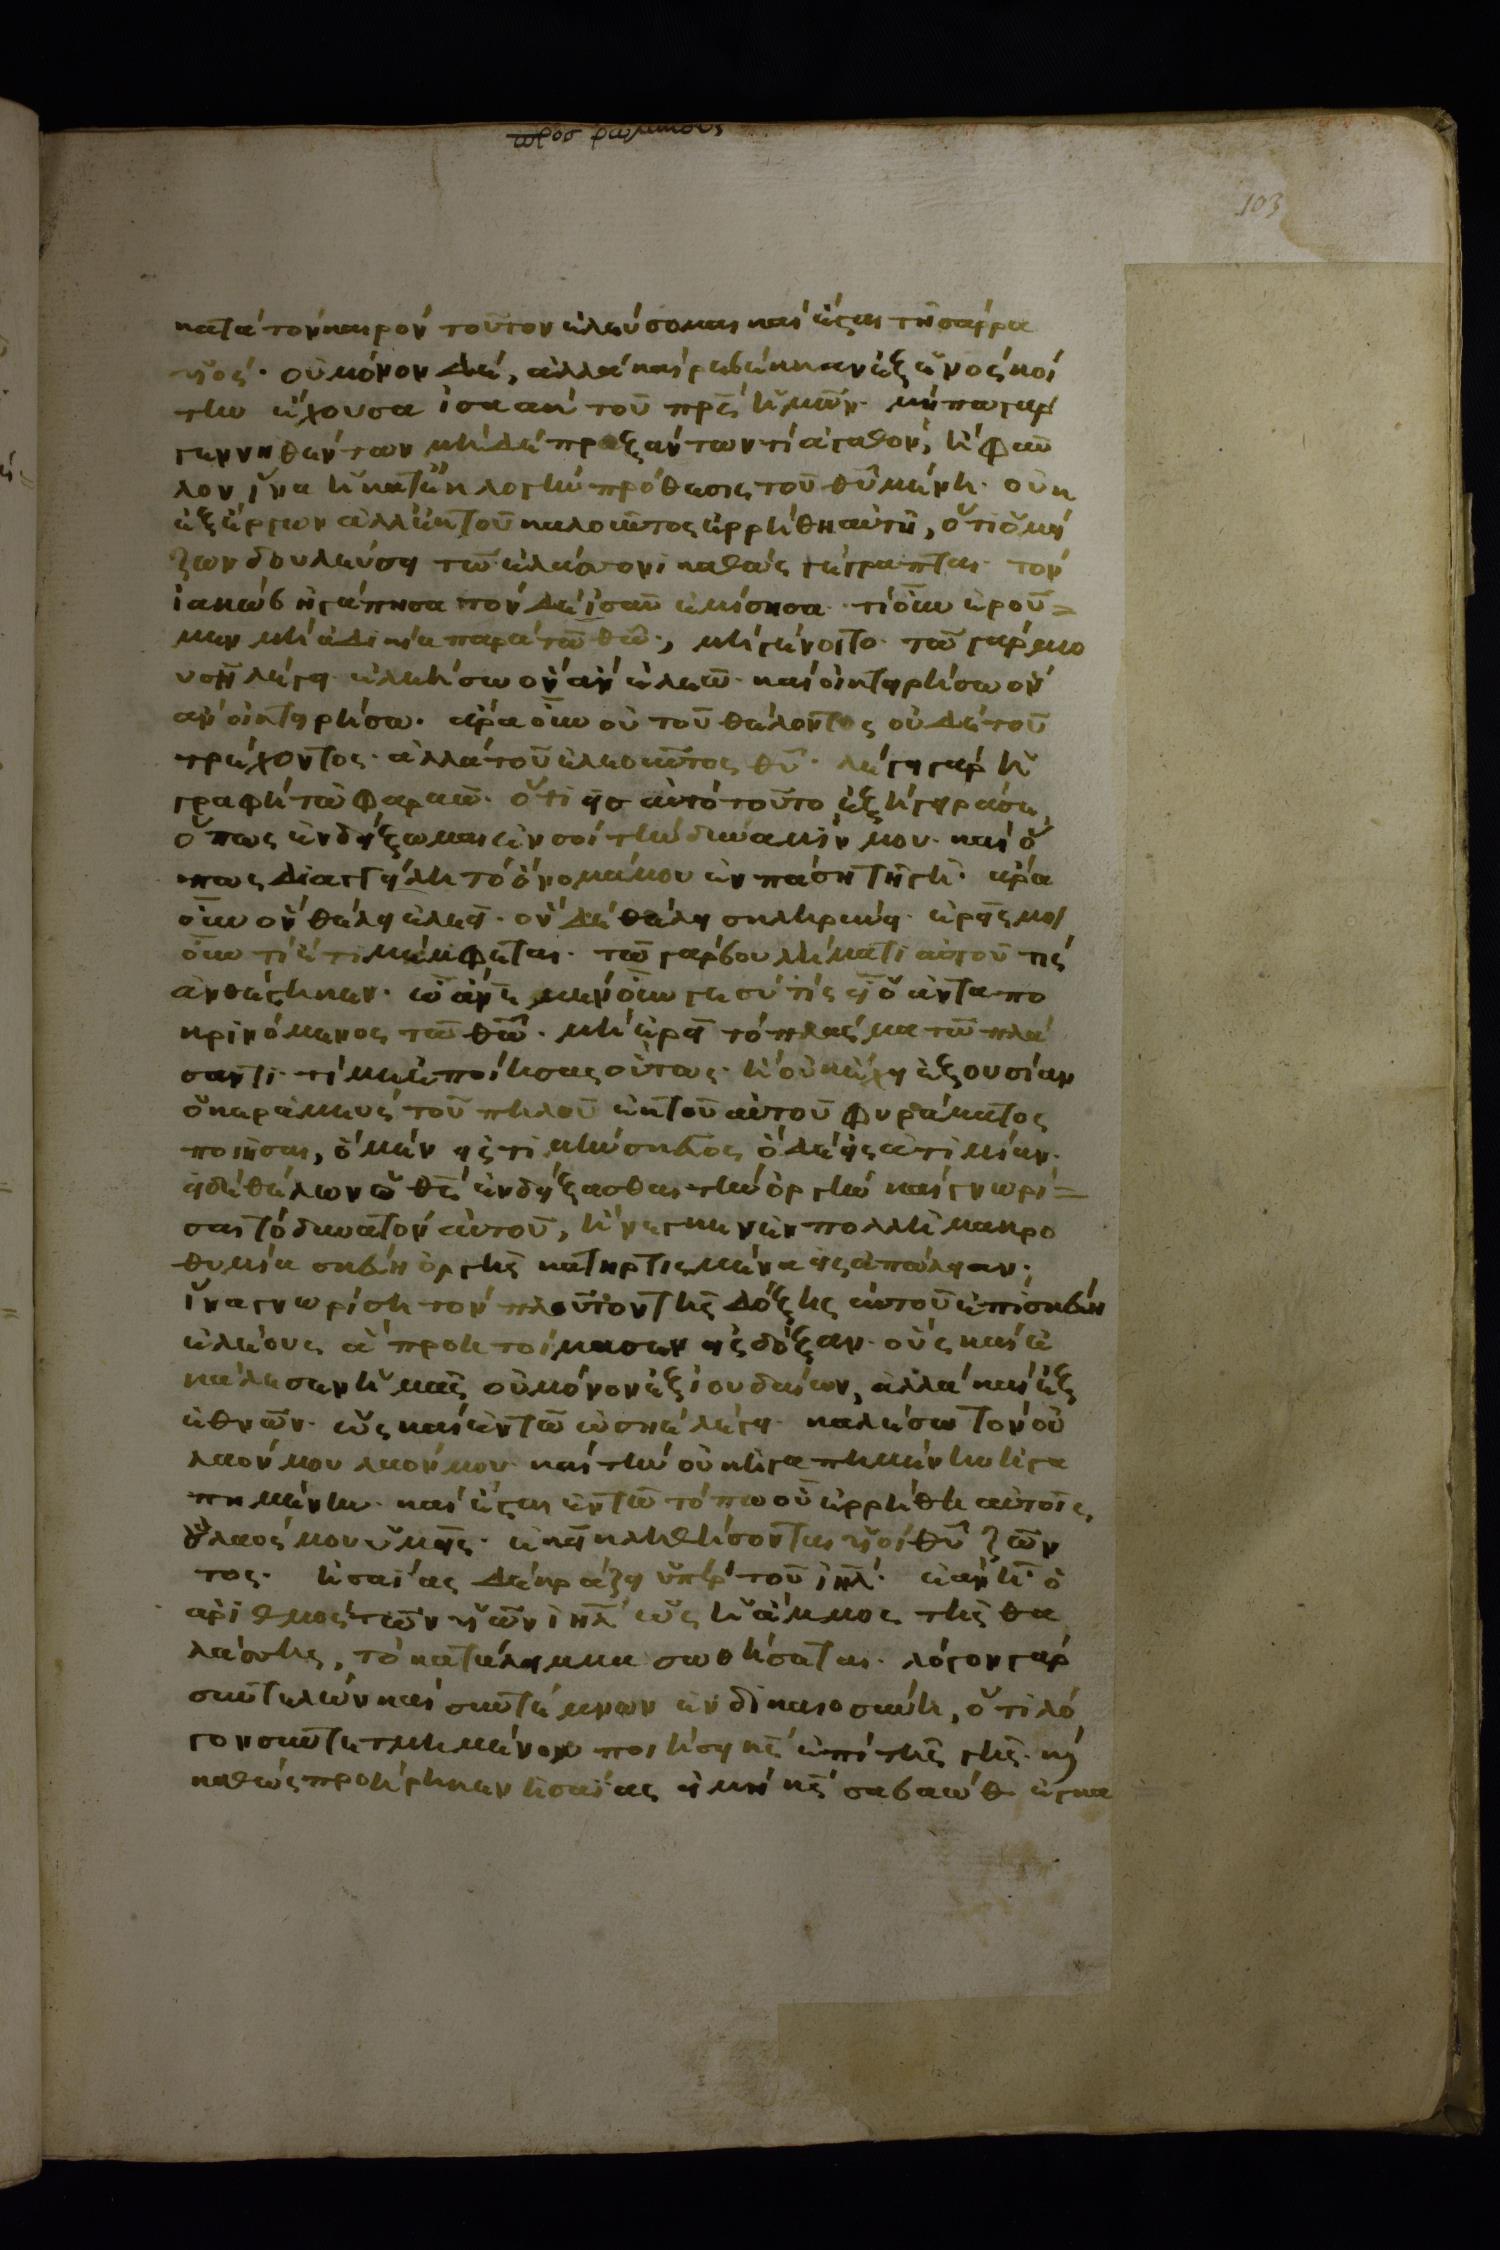 πρὸς ρωμαίους
103
κατὰ τὸν καιρὸν τοῦτον ἐλεύσομαι καὶ ἔσται τῇ σάρρα
υἱός· οὐ μόνον δέ, ἀλλὰ καὶ ρεβέκκα ἐξ ἑνὸς κοί
την ἔχουσα ἰσαὰκ τοῦ πρς ἡμῶν· μήπω γὰρ
γεννηθέντων μηδὲ πραξάντων τὶ ἀγαθὸν, ἢ φαῦ
λον ἵνα ἡ κατ' ἐκλογὴν πρόθεσις τοῦ θυ μένη· οὐκ
ἐξ ἔργων ἀλλ' ἐκ τοῦ καλοῦντος ἐρρήθη αὐτῆ, ὅτι ὁ μεί
ζων δουλεύσει τῶ ἐλάσσονι καθὼς γέγραπται· τὸν
ἰακὼβ ἠγάπησα τὸν δὲ ἰσαῦ ἐμίσησα· τί οὖν ἐροῦ=
μεν μὴ ἀδικία παρὰ τῶ θω; μὴ γένοιτο· τῶ γὰρ μω
υσῆ λέγει ἐλεήσω ὃν ἂν ἐλεῶ· καὶ οἰκτειρήσω ὃν
ἂν οἰκτειρήσω· ἄρα οὖν οὐ τοῦ θέλοντος οὐδὲ τοῦ
τρέχοντος· ἀλλὰ τοῦ ἐλεοῦντος θυ· λέγει γὰρ ἡ
γραφὴ τῶ φαραῶ· ὅτι εἰς αὐτὸ τοῦτο ἐξήγειρά σε,
ὅπως ἐνδείξωμαι ἐν σοὶ τὴν δύναμίν μου· καὶ ὅ
πως διαγγέλη τὸ ὄνομά μου ἐν πάση τῆ γῆ· ἄρα
οὖν ὃν θέλει ἐλεεῖ· ὃν δὲ θέλει σκληρύνει· ἐρεῖς μοι
οὖν τί ἔτι μέμφεται· τῶ γὰρ βουλήματι αὐτοῦ τίς
ἀνθέστηκεν· ὦ ἄνε μενοῦν γε σὺ τίς εἶ ὁ ἀνταπο
κρινόμενος τῶ θω· μὴ ἐρεῖ τὸ πλάσμα τῶ πλά
σαντι· τί με ἐποίησας οὕτως· ἢ οὐκ ἔχει ἐξουσίαν
ὁ κεραμεὺς τοῦ πηλοῦ ἐκ τοῦ αὐτοῦ φυράματος
ποιῆσαι, ὃ μὲν εἰς τιμὴν σκεῦος ὃ δὲ εἰς ἀτιμίαν·
εἰ δὲ θέλων ὁ θς ἐνδείξασθαι τὴν ὀργὴν καὶ γνωρί=
σαι τὸ δυνατὸν αὐτοῦ, ἤνεγκεν ἐν πολλῆ μακρο
θυμία σκεύη ὀργῆς κατηρτισμένα εἰς ἀπώλειαν;
ἵνα γνωρίση τὸν πλοῦτον τῆς δόξης αὐτοῦ ἐπὶ σκεύη
ἐλέους ἃ προητοίμασεν εἰς δόξαν· οὓς καὶ ἐ
κάλεσεν ἡμᾶς οὐ μόνον ἐξ ἰουδαίων, ἀλλὰ καὶ ἐξ
ἐθνῶν· ὡς καὶ ἐν τῶ ὡσηὲ λέγει· καλέσω τὸν οὐ
λαόν μου λαόν μου· καὶ τὴν οὐκ ἠγαπημένην ἠγα
πημένην· καὶ ἔσται ἐν τῶ τόπω οὗ ἐρρήθη αὐτοῖς,
οὐ λαός μου ὑμεῖς· ἐκεῖ κληθήσονται υἱοὶ θυ ζῶν
τος· ἠσαΐας δὲ κράζει ὑπὲρ τοῦ ἰηλ· ἐὰν ἦ ὁ
ἀριθμὸς τῶν υἱῶν ἰηλ ὡς ἡ ἄμμος τῆς θα
λάσσης, τὸ κατάλειμμα σωθήσεται· λόγον γὰρ
συντελῶν καὶ συντέμνων ἐν δικαιοσύνη, ὅτι λό
γον συντετμημένον ποιήσει κς ἐπὶ τῆς γῆς· κ
καθὼς προείρηκεν ἠσαΐας εἰ μὴ κς σαβαὼθ ἐγκα